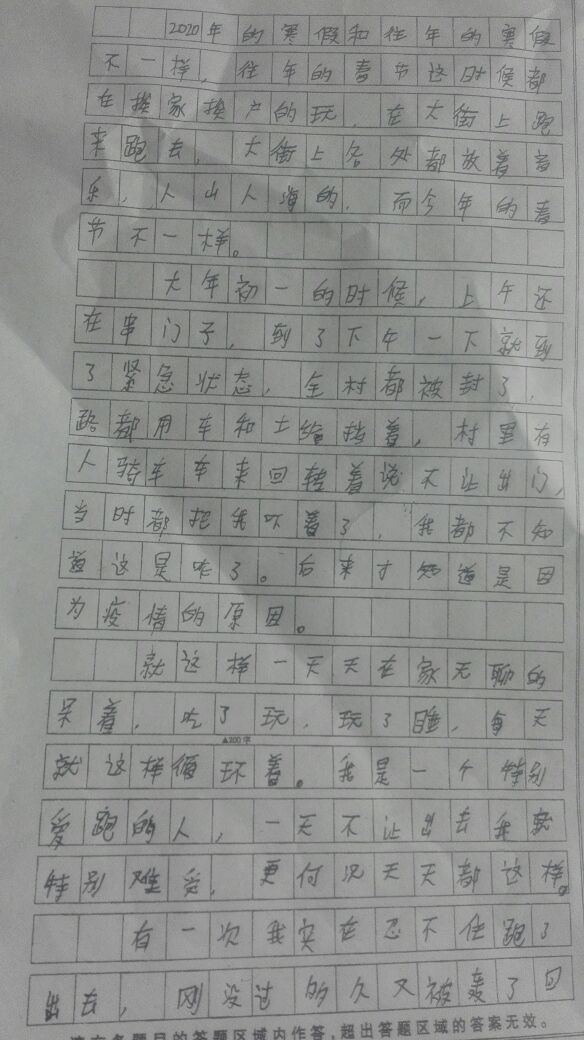 2020年的寒假和往年的寒假
不一样，往年的春节这时候都
在挨家挨户的玩，在大街上跑
来跑去，大街上各处都放着音
乐，人山人海的，而今年的春
节不一样。
大年初一的时候，上午还
在串门子，到了下午一下就到
了紧急状态，全村都被封了，
路都用车和土给挡着，村里有
人骑车车来回转着说不让出门，
当时都把我吓着了，我都不知
道这是咋了。后来才知道是因
为疫情的原因。
就这样一天天在家无聊的
呆着，吃了玩，玩了睡，每天
▲200字
就这样循环着。我是一个特别
爱跑的人，一天不让出去我就
特别难受，更何况天天都这样。
有一次我实在忍不住跑了
出去，刚没过的久又被轰了回
请在各题目的答题区域内作答，超出答题区域的答案无效。